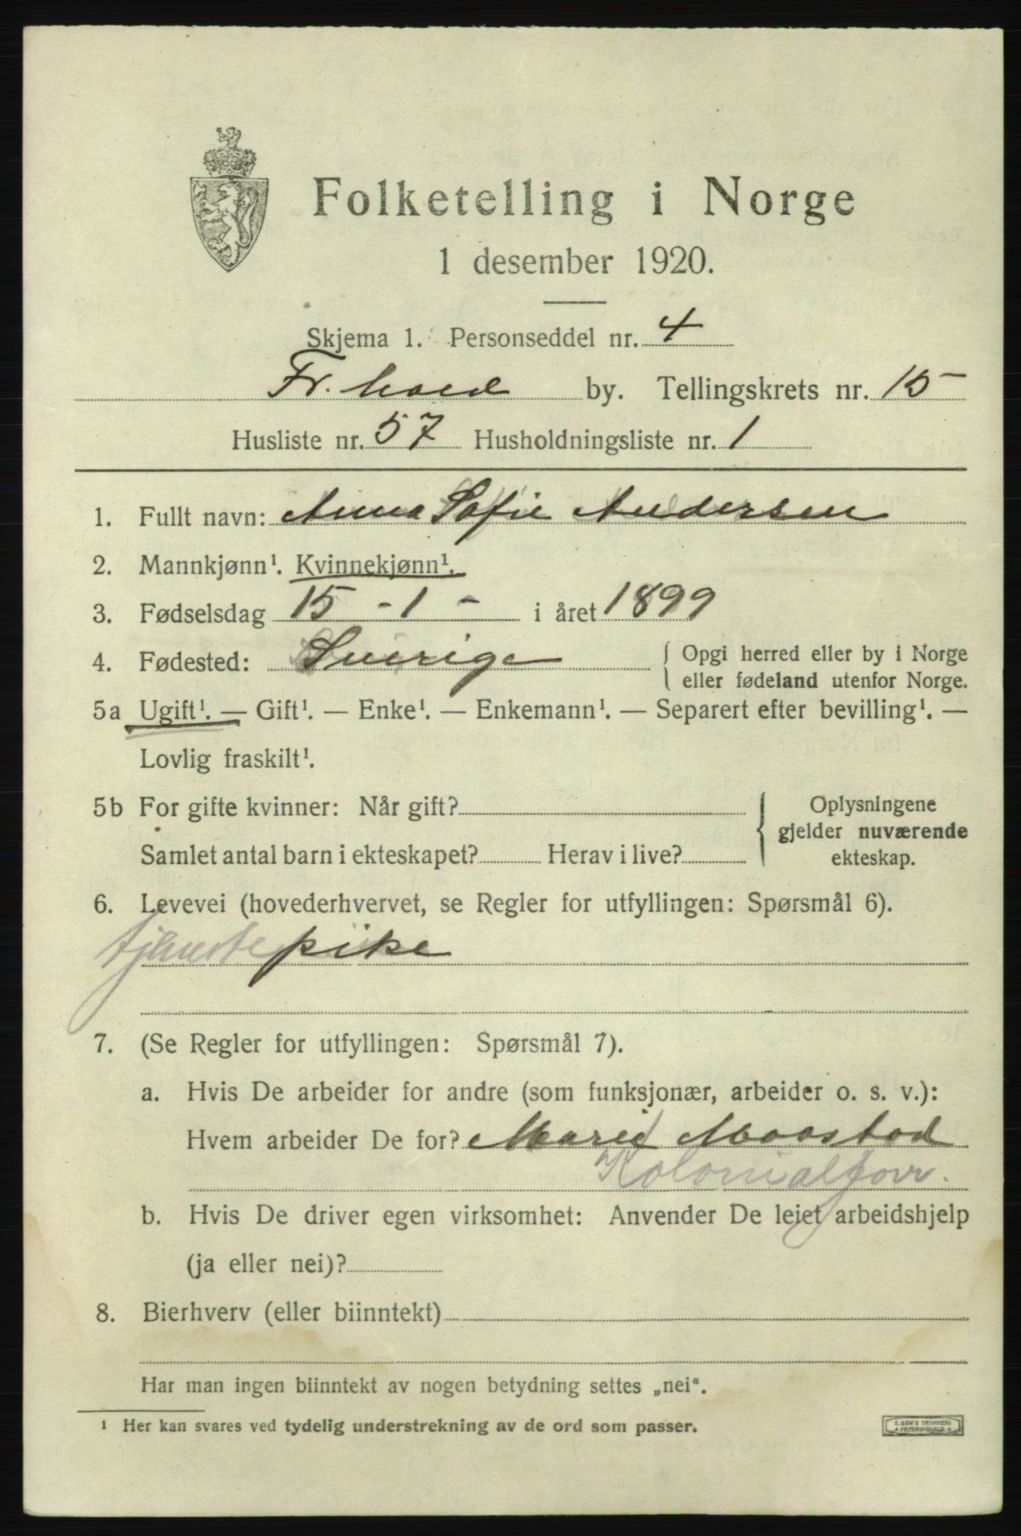 Folketelling i Norge
1 desember 1920.
Skjema 1. Personseddel nr. 4
Fr.hald by. Tellingskrets nr. 15
Husliste nr. 57 Husholdningsliste nr. 1
1. Fullt navn: Anna Sofie Andersen
2. Mannkjønn¹. Kvinnekjønn¹.
3. Fødselsdag 15 - 1 - i året 1899
4. Fødested: Sverige { Opgi herred eller by i Norge
eller fødeland utenfor Norge.
5a Ugift¹. — Gift¹. — Enke¹. — Enkemann¹. — Separert efter bevilling¹. —
Lovlig fraskilt¹.
5b For gifte kvinner: Når gift? { Oplysningene
gjelder nuværende
Samlet antal barn i ekteskapet? Herav i live? ekteskap.
6. Levevei (hovederhvervet, se Regler for utfyllingen: Spørsmål 6).
tjenestepike
7. (Se Regler for utfyllingen: Spørsmål 7).
a. Hvis De arbeider for andre (som funksjonær, arbeider o. s. v.):
Hvem arbeider De for? Marie Moastad
Kolonialforr.
b. Hvis De driver egen virksomhet: Anvender De leiet arbeidshjelp
(ja eller nei)?
8. Bierhverv (eller biinntekt)
Har man ingen biinntekt av nogen betydning settes „nei“.
¹ Her kan svares ved tydelig understrekning av de ord som passer.